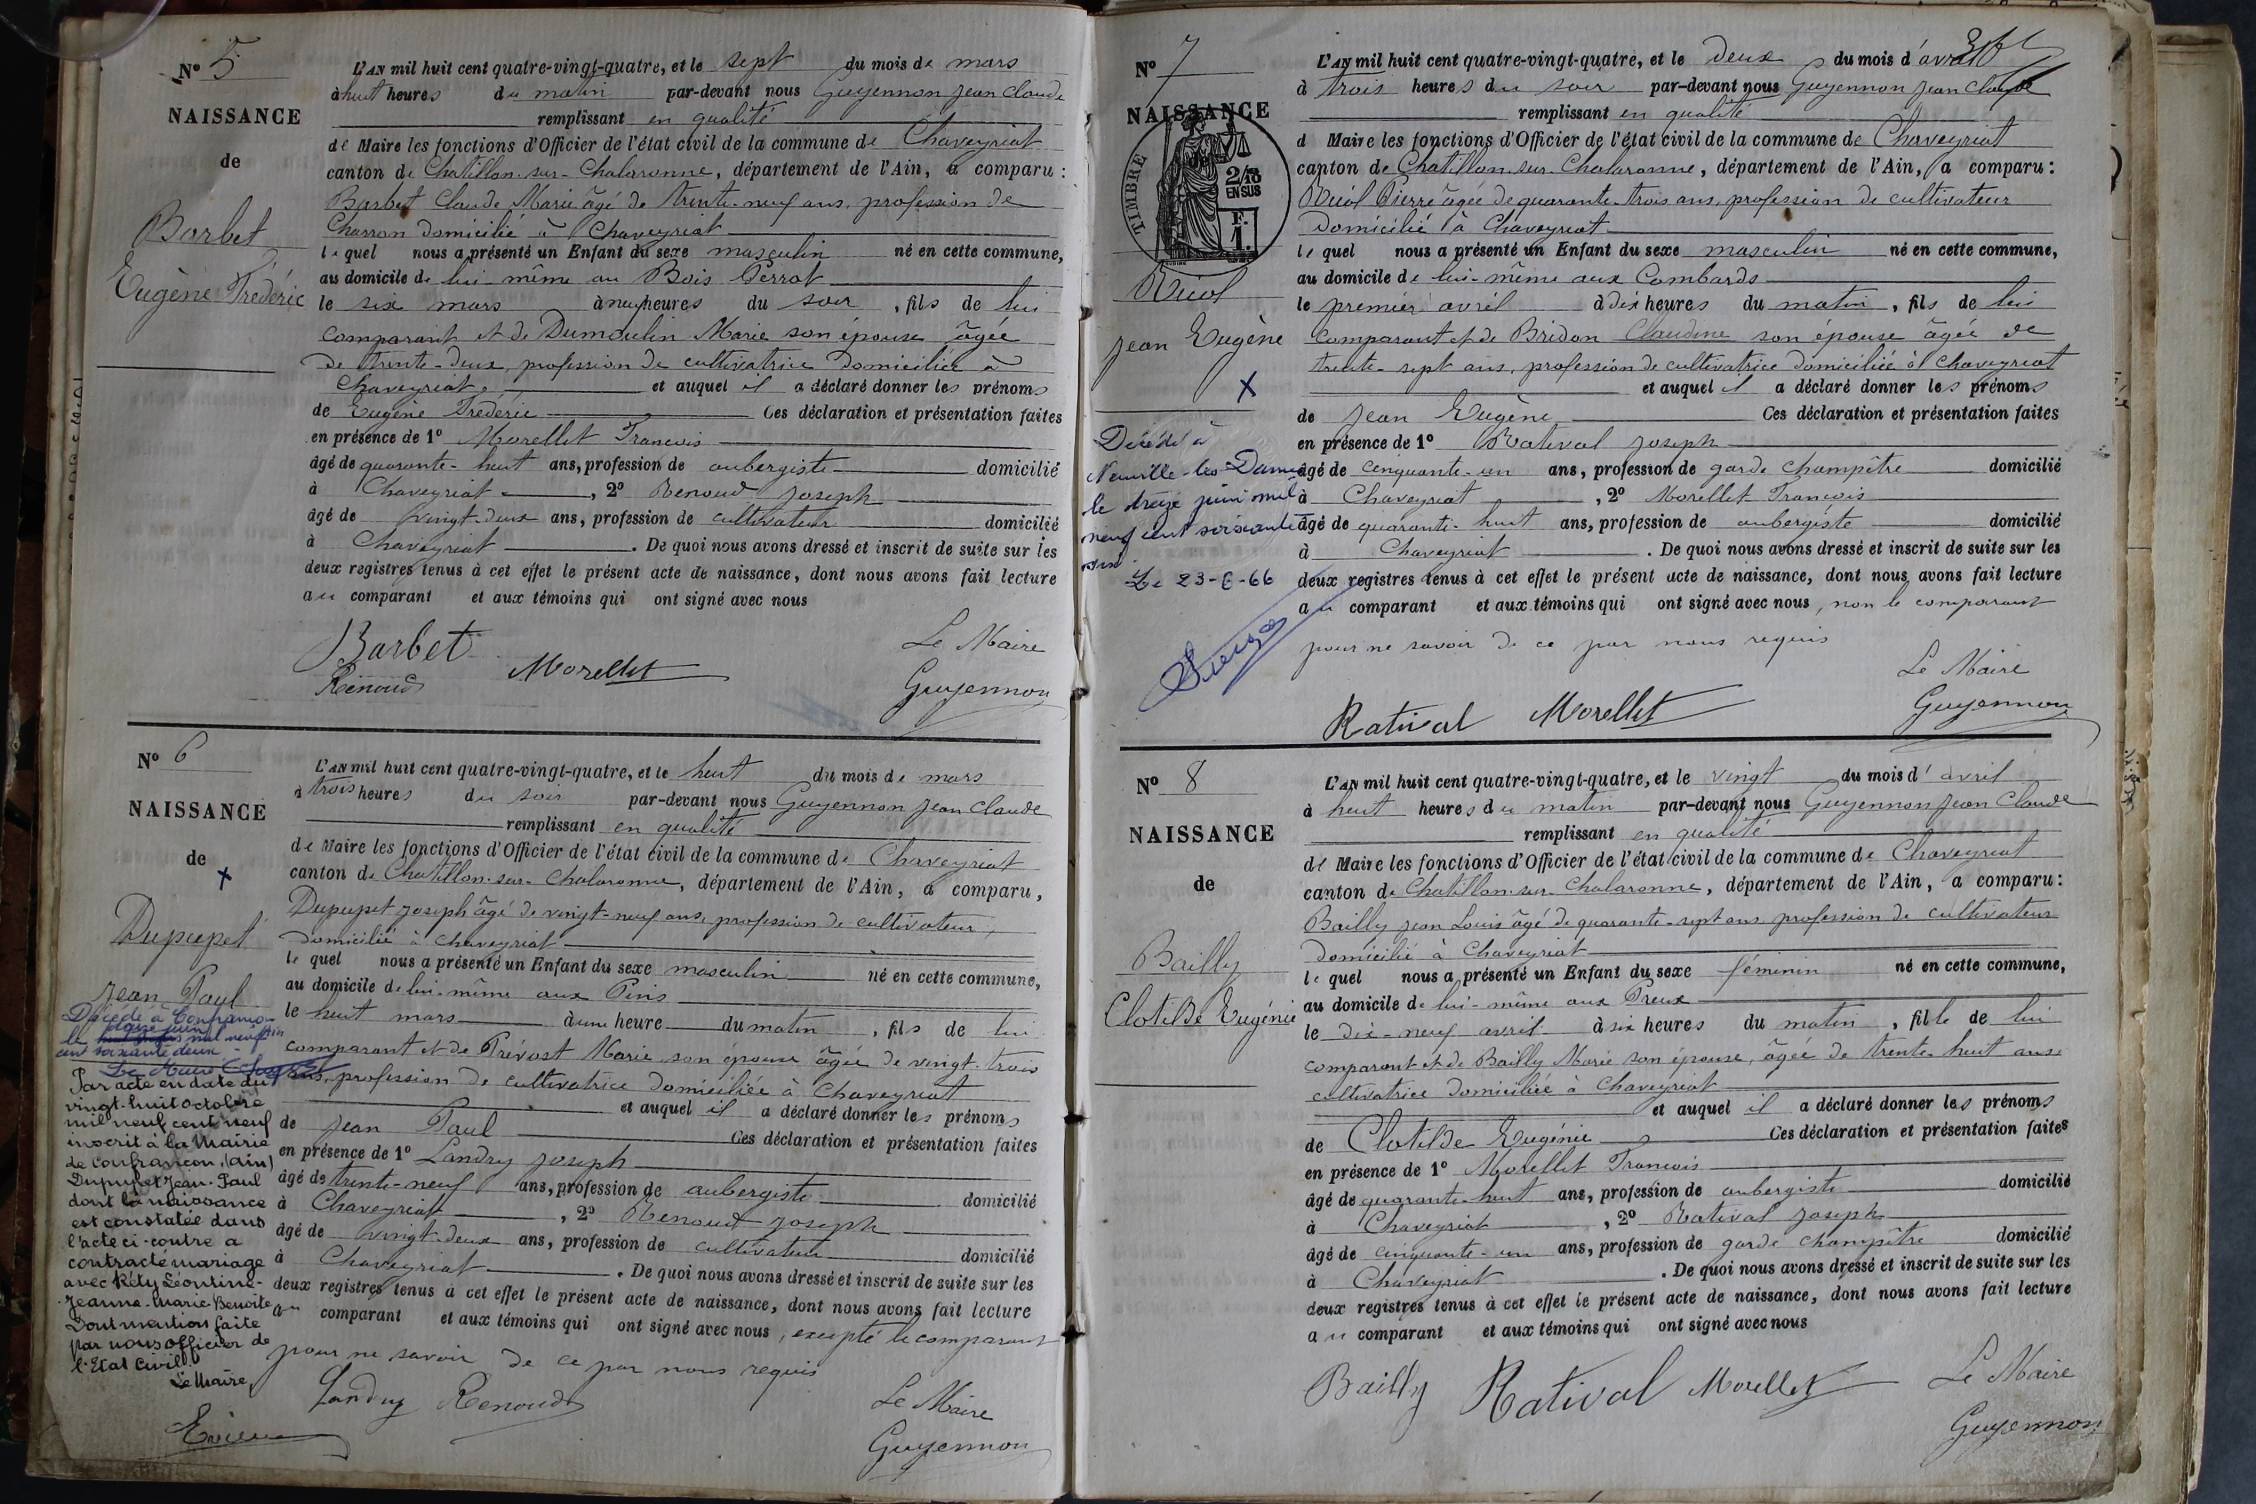 Nº 5
NAISSANCE
de
Barbet
Eugène Frédéric
L'AN mil huit cent quatre-vingt-quatre, et le sept du mois de mars
à huit heures du matin par-devant nous Guyennon Jean Claude
remplissant en qualité
de Maire les fonctions d'Officier de l'état civil de la commune de Chaveyriat
canton de Chatillon-sur-Chalaronne, département de l'Ain, a comparu :
Barbet Claude Marie âgé de trente-neuf ans, profession de
Charron domicilié à Chaveyriat
le quel nous a présenté un Enfant du sexe masculin né en cette commune,
au domicile de lui-même au Bois Perrot
le six mars à neuf heures du soir, fils de lui
comparant et de Dumoulin Marie son épouse âgée
de trente-deux, profession de cultivatrice domiciliée à
Chaveyriat, et auquel il a déclaré donner les prénoms
de Eugène Frédéric Ces déclaration et présentation faites
en présence de 1º Morellet Francois
âgé de quarante-huit ans, profession de aubergiste domicilié
à Chaveyriat, 2º Renoud Joseph
âgé de vingt-deux ans, profession de cultivateur domicilié
à Chaveyriat. De quoi nous avons dressé et inscrit de suite sur les
deux registres tenus à cet effet le présent acte de naissance, dont nous avons fait lecture
au comparant et aux témoins qui ont signé avec nous
Barbet Morellet Le Maire
Renoud Guyennon
Nº 6
NAISSANCE
de
Dupupet
Jean Paul
Décédé à Confrançon
le douze juin mil neuf Ain
cent soixante deux
Le Maire
Par acte en date du
vingt-huit octobre
mil neuf cent neuf
inscrit à la Mairie
de Confrançon, (Ain)
Dupupet Jean-Paul
dont la naissance
est constatée dans
l'acte ci-contre a
contracté mariage
avec Réty Léontine-
Jeanne-Marie-Benoîte
Dont mention faite
par nous officier de
l'Etat Civil
Le Maire,
L'AN mil huit cent quatre-vingt-quatre, et le huit du mois de mars
à trois heures du soir par-devant nous Guyennon Jean Claude
remplissant en qualité
de Maire les fonctions d'Officier de l'état civil de la commune de Chaveyriat
canton de Chatillon-sur-Chalaronne, département de l'Ain, a comparu,
Dupupet Joseph âgé de vingt-neuf ans, profession de cultivateur,
domicilié à Chaveyriat
le quel nous a présenté un Enfant du sexe masculin né en cette commune,
au domicile de lui-même aux Pinis
le huit mars à une heure du matin, fils de lui
comparant et de Prévost Marie son épouse âgée de vingt-trois
ans, profession de cultivatrice domiciliée à Chaveyriat
et auquel il a déclaré donner les prénoms
de Jean Paul Ces déclaration et présentation faites
en présence de 1º Landry Joseph
âgé de trente-neuf ans, profession de aubergiste domicilié
à Chaveyriat, 2º Renoud Joseph
âgé de vingt-deux ans, profession de cultivateur domicilié
à Chaveyriat. De quoi nous avons dressé et inscrit de suite sur les
deux registres tenus à cet effet le présent acte de naissance, dont nous avons fait lecture
au comparant et aux témoins qui ont signé avec nous, excepté le comparant
pour ne savoir de ce par nous requis
Landry Renoud Le Maire
Guyennon
Nº 7
NAISSANCE
TIMBRE
2/10
EN SUS
F.
1.
Nicol
Jean Eugène
Décédé à
Neuville-les-Dames
le treize juin mil
neuf cent soixante
six.
Le 23-6-66
L'AN mil huit cent quatre-vingt-quatre, et le deux du mois d'avril
à trois heures du soir par-devant nous Guyennon Jean Claude
remplissant en qualité
d Maire les fonctions d'Officier de l'état civil de la commune de Chaveyriat
canton de Chatillon-sur-Chalaronne, département de l'Ain, a comparu :
Nicol Pierre âgée de quarante-trois ans, profession de cultivateur
domicilié à Chaveyriat
le quel nous a présenté un Enfant du sexe masculin né en cette commune,
au domicile de lui-même aux Combards
le premier avril à dix heures du matin, fils de lui
comparant et de Bridon Claudine son épouse âgée de
trente-sept ans, profession de cultivatrice domiciliée à Chaveyriat
et auquel il a déclaré donner les prénoms
de Jean Eugène Ces déclaration et présentation faites
en présence de 1º Ratival Joseph
âgé de cinquante-un ans, profession de garde champêtre domicilié
à Chaveyriat, 2º Morellet Francois
âgé de quarante-huit ans, profession de aubergiste domicilié
à Chaveyriat. De quoi nous avons dressé et inscrit de suite sur les
deux registres tenus à cet effet le présent acte de naissance, dont nous avons fait lecture
au comparant et aux témoins qui ont signé avec nous, non le comparant
pour ne savoir de ce par nous requis
Le Maire
Ratival Morellet Guyennon
Nº 8
NAISSANCE
de
Bailly
Clotilde Eugénie
L'AN mil huit cent quatre-vingt-quatre, et le vingt du mois d'avril
à huit heures du matin par-devant nous Guyennon Jean Claude
remplissant en qualité
de Maire les fonctions d'Officier de l'état civil de la commune de Chaveyriat
canton de Chatillon-sur-Chalaronne, département de l'Ain, a comparu :
Bailly Jean Louis âgé de quarante-sept ans profession de cultivateur
domicilié à Chaveyriat
le quel nous a présenté un Enfant du sexe féminin né en cette commune,
au domicile de lui-même aux Preux
le dix-neuf avril à six heures du matin, fille de lui
comparant et de Bailly Marie son épouse, âgée de trente-huit ans
cultivatrice domiciliée à Chaveyriat
et auquel il a déclaré donner les prénoms
de Clotilde Eugénie Ces déclaration et présentation faites
en présence de 1º Morellet Francois
âgé de quarante-huit ans, profession de aubergiste domicilié
à Chaveyriat, 2º Ratival Joseph
âgé de cinquante-un ans, profession de garde champêtre domicilié
à Chaveyriat. De quoi nous avons dressé et inscrit de suite sur les
deux registres tenus à cet effet le présent acte de naissance, dont nous avons fait lecture
au comparant et aux témoins qui ont signé avec nous
Bailly Ratival Morellet Le Maire
Guyennon